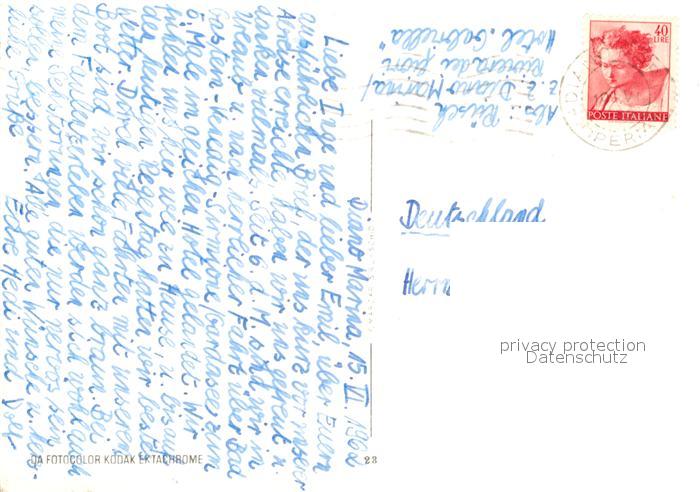 Diano Marina, 15. VI. 1962
Liebe Inge und lieber Emil, über Euern
ausführlichen Brief, der uns kurz vor unserer
Abreise erreichte, haben wir uns gefreut u.
danken vielmals. Seit 6. d. M. sind wir in
Urlaub u. nach herrlicher Fahrt über Bad
Gastein - Sirmione/Gardasee zum
5. Male im gleichen Hotel gelandet. Wir
fühlen uns hier wie zu Hause, u. bis auf
den heutigen Regentag hatten wir bestes
Wetter. Durch viele Fahrten mit unserem
Boot sind wir schon ganz braun. Bei
dem Faulenzerleben werden sich wohl auch
mein
sein
sollen, bessern. Alle guten Wünsche u. herz-
liche Grüße Eure Hedi und
Abs.: Rüsch
z. Z. Diano Marina/
Riviera dei fiori
Hotel "Gabriella"
40
LIRE
POSTE ITALIANE
Deutschland
Herrn
privacy protection
Datenschutz
DA FOTOCOLOR KODAK EKTACHROME
23